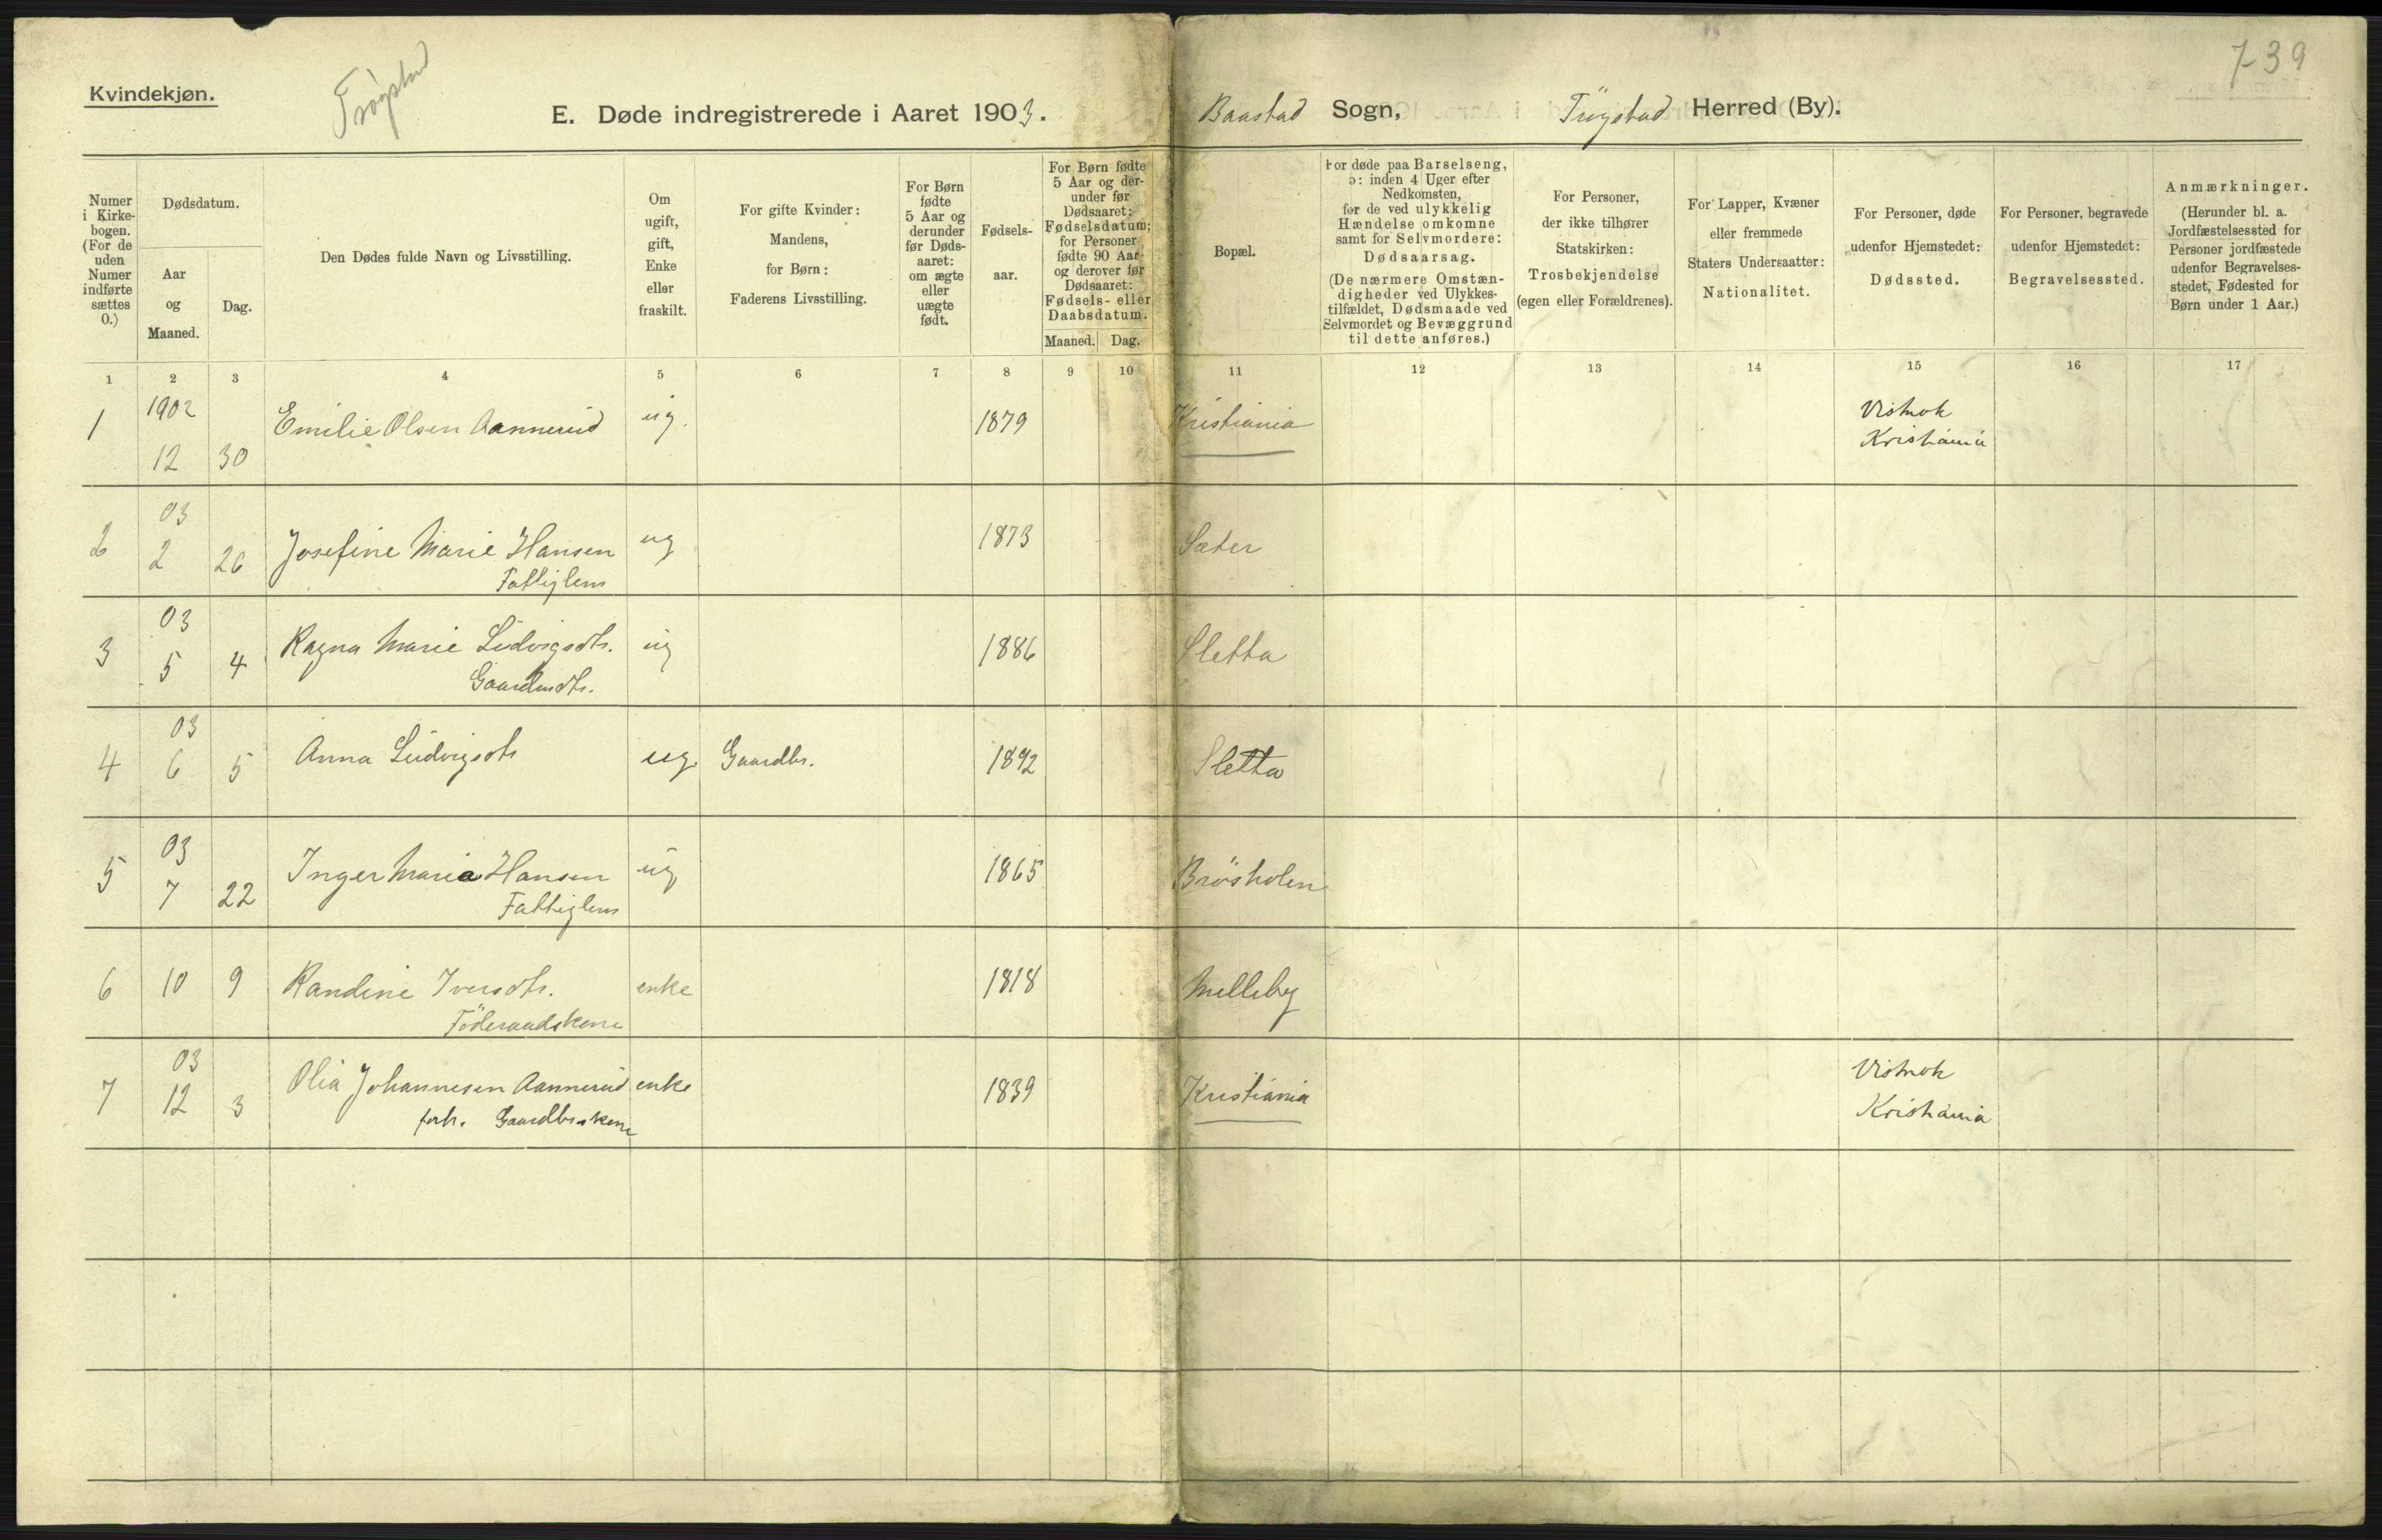 Kvindekjøn.
Trøgstad
E. Døde indregistrerede i Aaret 1903.
Baastad Sogn, Trögstad Herred (By).
7-39
Numer
i Kirke-
bogen.
(For de
uden
Numer
indførte
sættes
0.)
Dødsdatum.
Aar
og
Maaned.
Dag.
Den Dødes fulde Navn og Livsstilling.
Om
ugift,
gift,
Enke
eller
fraskilt.
For gifte Kvinder:
Mandens,
for Børn:
Faderens Livsstilling.
For Børn
fødte
5 Aar og
derunder
før Døds-
aaret:
om ægte
eller
uægte
født.
Fødsels-
aar.
For Børn fødte
5 Aar og der-
under før
Dødsaaret:
Fødselsdatum;
for Personer
fødte 90 Aar
og derover før
Dødsaaret:
Fødsels- eller
Daabsdatum.
Maaned. Dag.
Bopæl.
For døde paa Barselseng,
ɔ: inden 4 Uger efter
Nedkomsten,
for de ved ulykkelig
Hændelse omkomne
samt for Selvmordere:
Dødsaarsag.
(De nærmere Omstæn-
digheder ved Ulykkes-
tilfældet, Dødsmaade ved
Selvmordet og Bevæggrund
til dette anføres.)
For Personer,
der ikke tilhører
Statskirken:
Trosbekjendelse
(egen eller Forældrenes).
For Lapper, Kvæner
eller fremmede
Staters Undersaatter:
Nationalitet.
For Personer, døde
udenfor Hjemstedet:
Dødssted.
For Personer, begravede
udenfor Hjemstedet:
Begravelsessted.
Anmærkninger.
(Herunder bl. a.
Jordfæstelsessted for
Personer jordfæstede
udenfor Begravelses-
stedet, Fødested for
Børn under 1 Aar.)
1 2 3 4 5 6 7 8 9 10 11 12 13 14 15 16 17
1902
1 12 30 Emilie Olsen Aannerud ug. 1879 Kristiania
Kristiania
03
2 2 26 Josefine Marie Hansen ug 1873 Sæter
Fattiglem
03
3 5 4 Ragna Marie Ludvigsdtr. ug 1886 Sletta
03
4 6 5 Anna Ludvigsdtr ug. Gaardbr. 1892 Sletta
03
5 7 22 Inger Maria Hansen ug 1865 Brösholen
Fattiglem
6 10 9 Randine Iversdtr. enke 1818 Melleby
Föderaadskone
03
7 12 3 Olia Johannesen Aannerud enke 1839 Kristiania
Gaardbr.kone
Kristiania